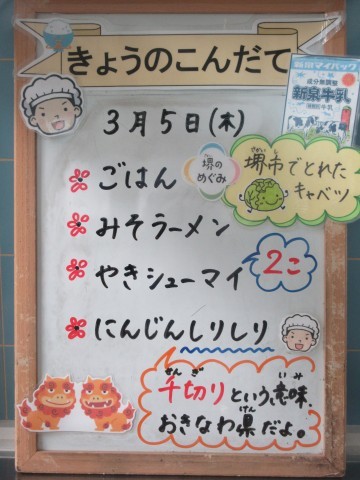 きょうのこんだて
3月5日(木)
新泉マイパック
成分無調整
新泉牛乳
ごはん
堺の
めぐみ
さかい
堺市でとれた
キャベツ
みそラーメン
やきシューマイ
2こ
にんじんしりしり
せんぎ
千切りという意味。
いみ
おきなわ県だよ。
けん